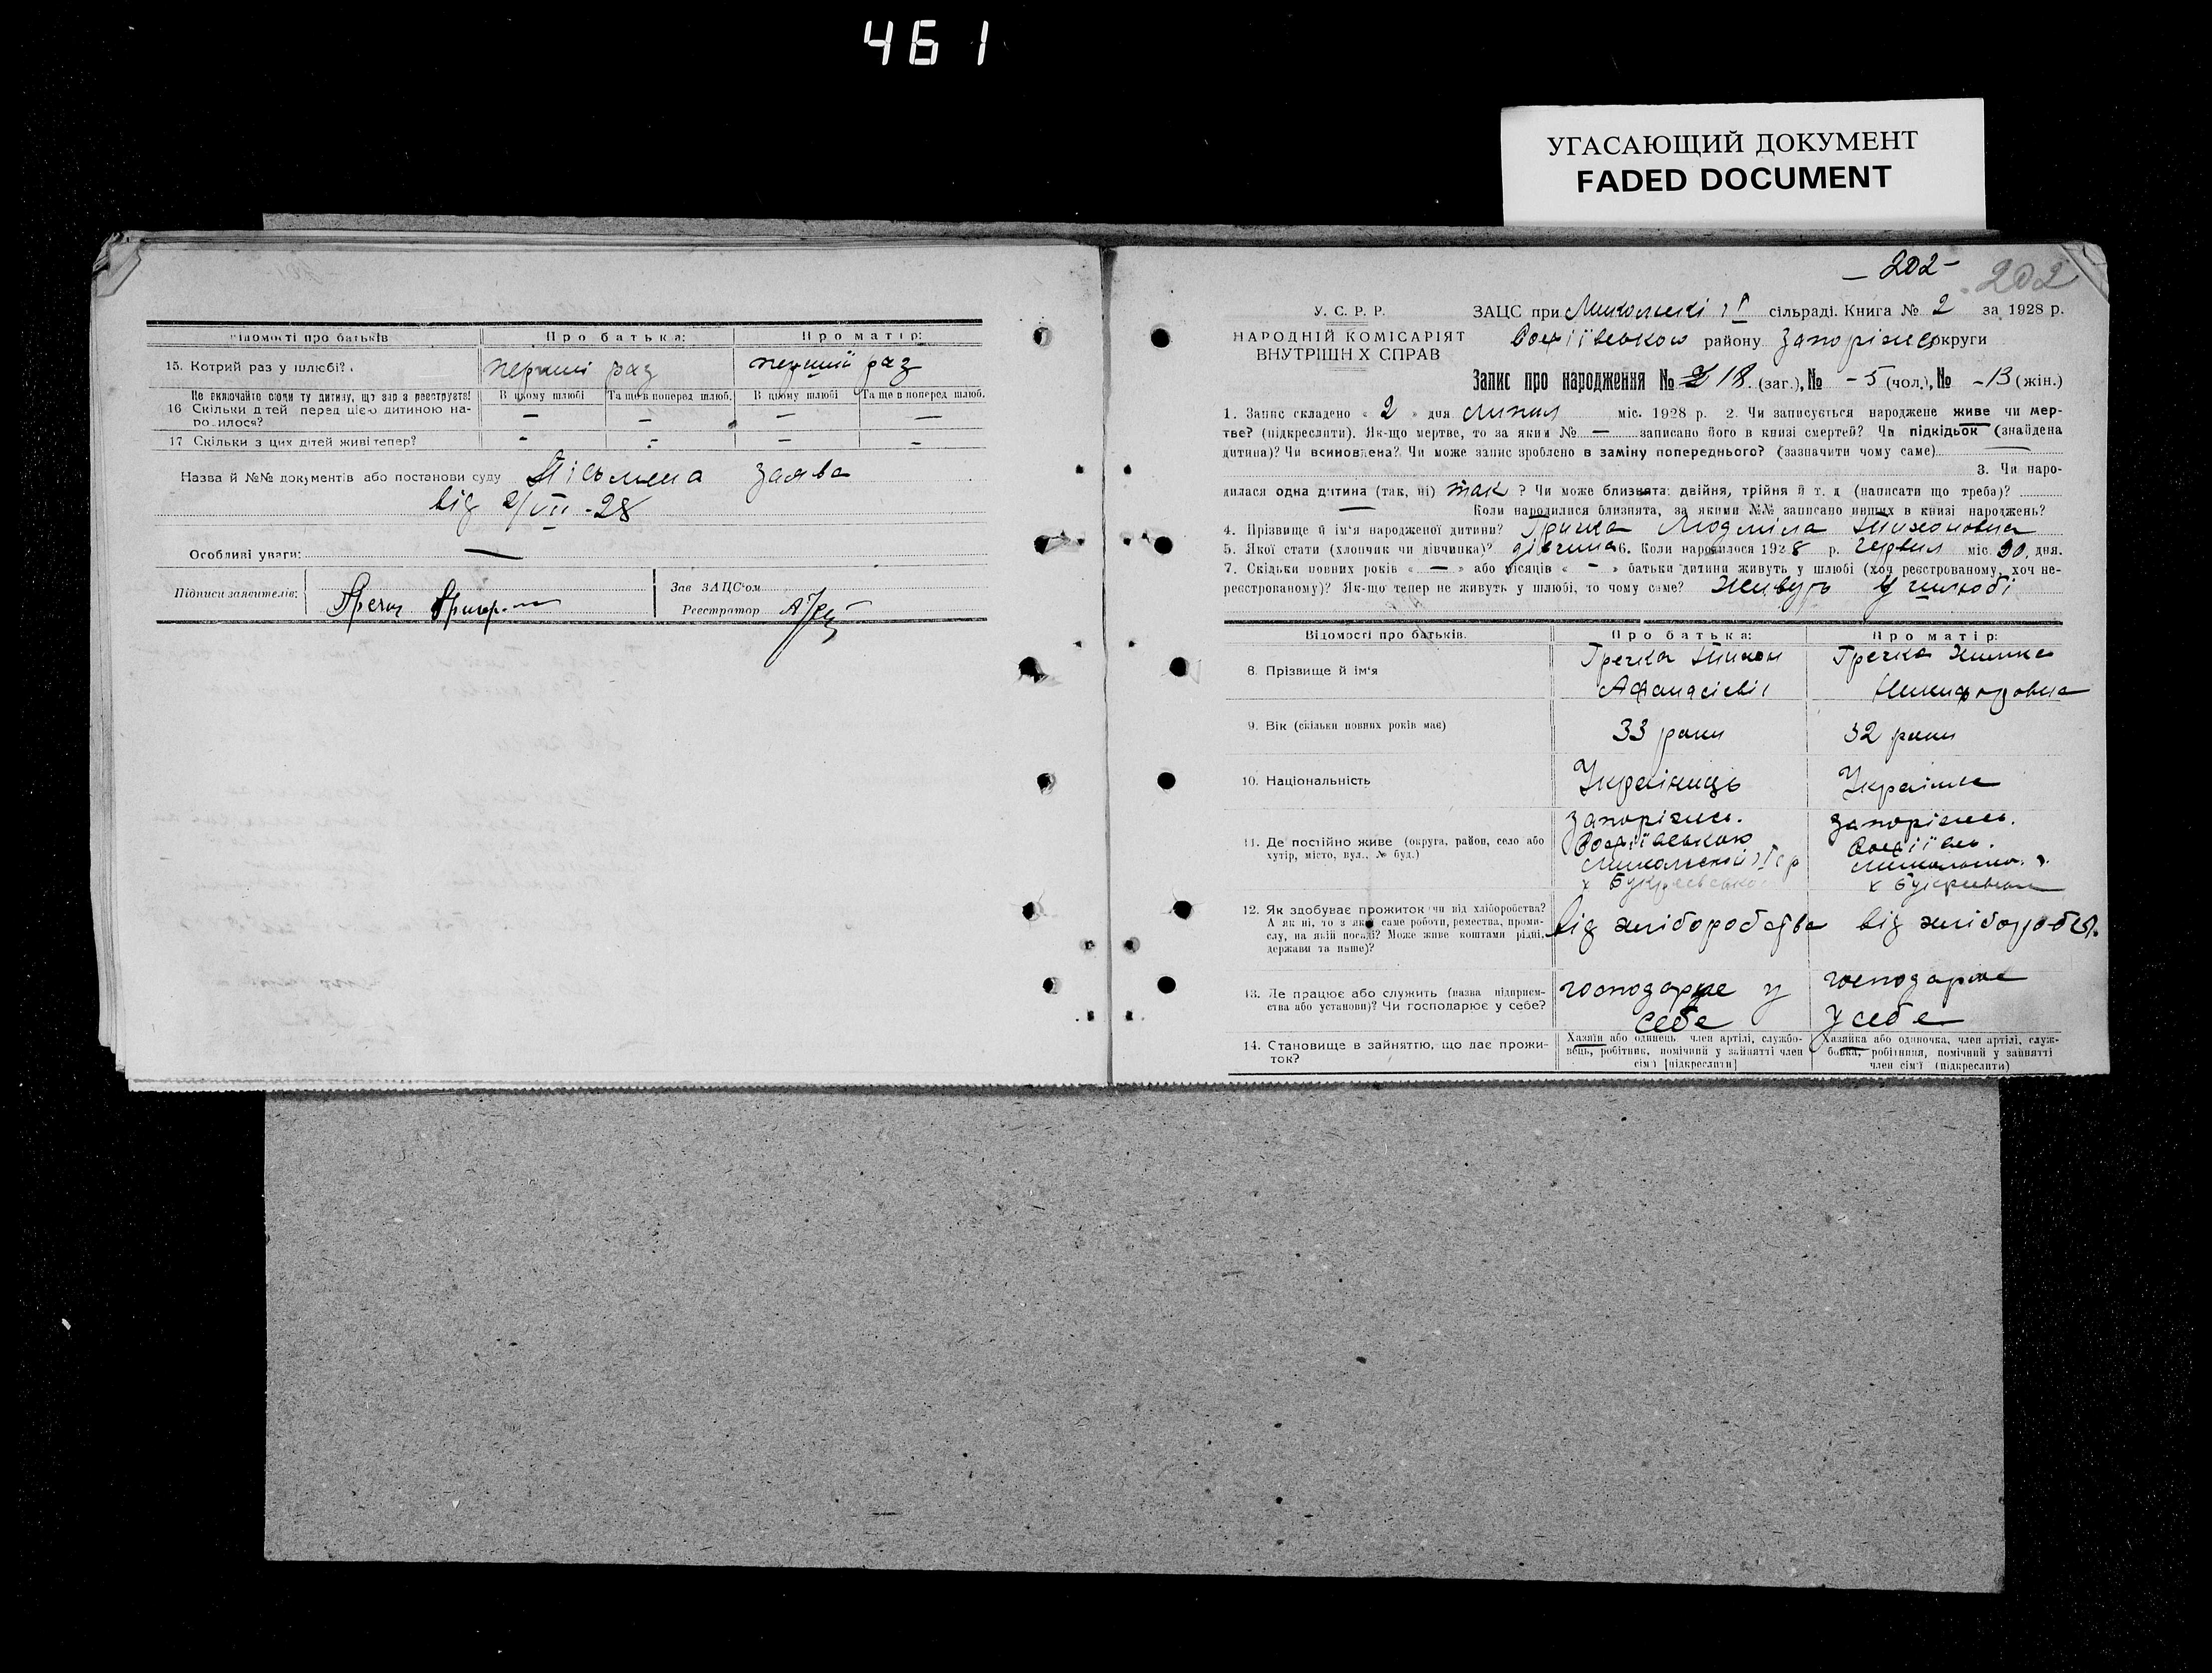 461
УГАСАЮЩИЙ ДОКУМЕНТ
FADED DOCUMENT
Відомості про батьків Про батька: Про матір:
15. Котрий раз у шлюбі? перший раз перший раз
Не включайте сюди ту дитину, що зараз реєструєте! В цьому шлюбі Та ще в поперед шлюб. В цьому шлюбі Та ще в поперед шлюб.
16 Скільки дітей перед цією дитиною на- — — — —
родилося?
17 Скільки з цих дітей живі тепер? - - - -
Назва й №№ документів або постанови суду Пісьмена заява
від 2/VII-28
Особливі уваги: —
Підписи заявителів: Зав ЗАЦС'ом
Реєстратор
-202- 202
У. С. Р. Р. ЗАЦС при сільраді. Книга № 2 за 1928 р.
НАРОДНІЙ КОМІСАРІЯТ району Запоріжс округи
ВНУТРІШНІХ СПРАВ
Запис про народження № 18 (заг.), № -5 (чол.), № -13 (жін.)
1. Запис складено « 2 » дня липня міс. 1928 р. 2. Чи записується народжене живе чи мер-
тве? (підкреслити). Як-що мертве, то за яким № — записано його в книзі смертей? Чи підкідьок (знайдена
дитина)? Чи всиновлена? Чи може запис зроблено в заміну попереднього? (зазначити чому саме)
3. Чи наро-
дилася одна дитина (так, ні) так ? Чи може близнята: двійня, трійня й т. д (написати що треба)?
— Коли народилися близнята, за якими №№ записано инших в книзі народжень?
4. Прізвище й ім'я народженої дитини? Гречка Людміла Тихоновна
5. Якої стати (хлопчик чи дівчинка)? дівчина 6. Коли народилося 1928 р. червня міс. 30. дня.
7. Скільки повних років « — » або місяців « - » батьки дитини живуть у шлюбі (хоч реєстрованому, хоч не-
реєстрованому)? Як-що тепер не живуть у шлюбі, то чому саме? Живуть у шлюбі
Відомості про батьків. Про батька: Про матір:
8. Прізвище й ім'я Гречка Тихон Гречка
Афанасієвіч Никифоровна
9. Вік (скільки повних років має) 33 роки 32 роки
10. Національність Українець Українка
11. Де постійно живе (округа, район, село або Запоріжсь. Запоріжсь.
хутір, місто, вул., № буд.)
12. Як здобуває прожиток чи від хліборобства? від хліборобства від хліборобст.
А як ні, то з якої саме роботи, ремества, проми-
слу, на якій посаді? Може живе коштами рідні,
держави та инше)?
13. Де працює або служить (назва підприєм- господарює у господарює
ства або установи)? Чи господарює у себе? себе у себе
14. Становище в зайняттю, що дає прожи- Хазяїн або одинець член артілі, службо- Хазяйка або одиночка, член артілі, служ-
ток? вець, робітник, помічний у зайнятті член бовка, робітниця, помічний у зайнятті
сім'ї [підкреслити] член сім'ї (підкреслити)